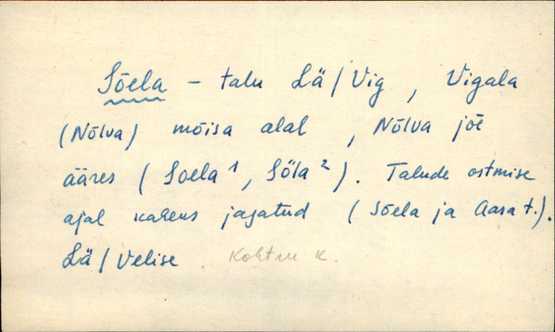 Sõela - talu Lä/Vig, Vigala
(Nõlva) mõisa alal, Nõlva jõe
ääres (Soela¹, Söla²). Talude ostmise
ajal kaheks jagatud (Sõela ja Aasa t.).
Lä/Velise. Kohtru k.